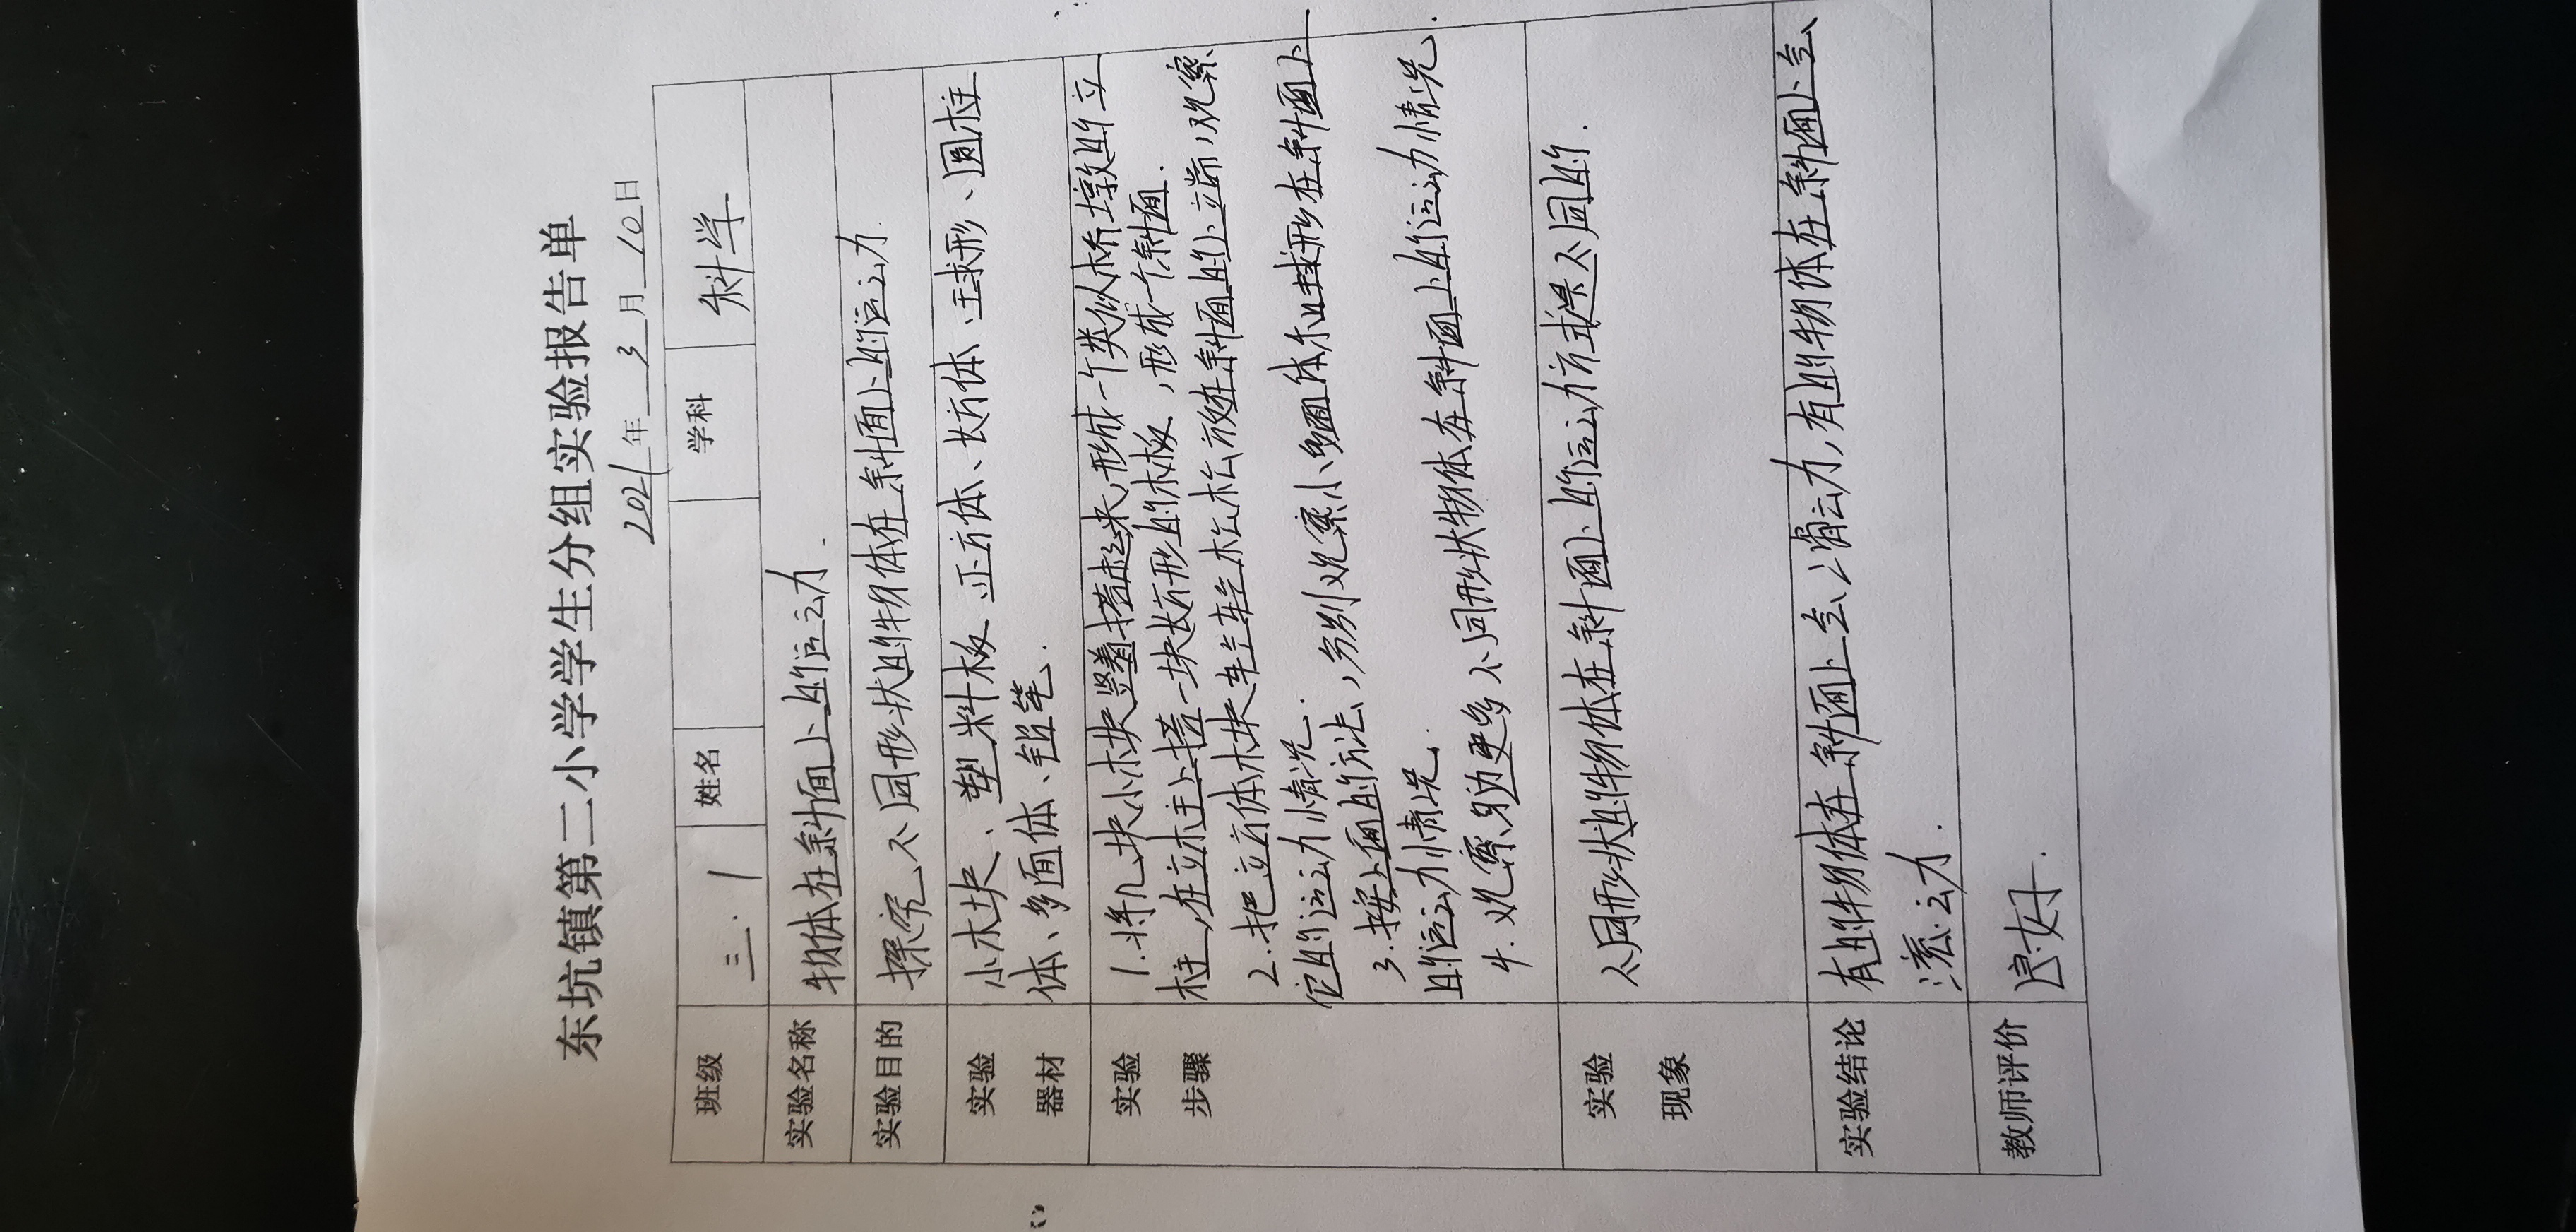 东坑镇第二小学学生分组实验报告单
2021年 3 月 10 日
班级 三.1 姓名 学科 科学
实验名称 物体在斜面上的运动.
实验目的 探究不同形状的物体在斜面上的运动.
实验 小木块、塑料板、正方体、长方体、球形、圆柱
器材 体、多面体、铅笔.
实验 1.将几块小木块竖着搭起来,形成一个类似桥墩的立
步骤 柱,在立柱上搭一块长方形的木板,形成一个斜面.
2.把立方体木块轻轻放在斜面的上端,观察
它的运动情况.
3.按上面的方法,分别观察小多面体和球形在斜面上
的运动情况.
4.观察身边更多不同形状物体在斜面上的运动情况.
实验 不同形状的物体在斜面上的运动方式是不同的.
现象
实验结论 有的物体在斜面上会滑动,有的物体在斜面上会
滚动.
教师评价 良好.